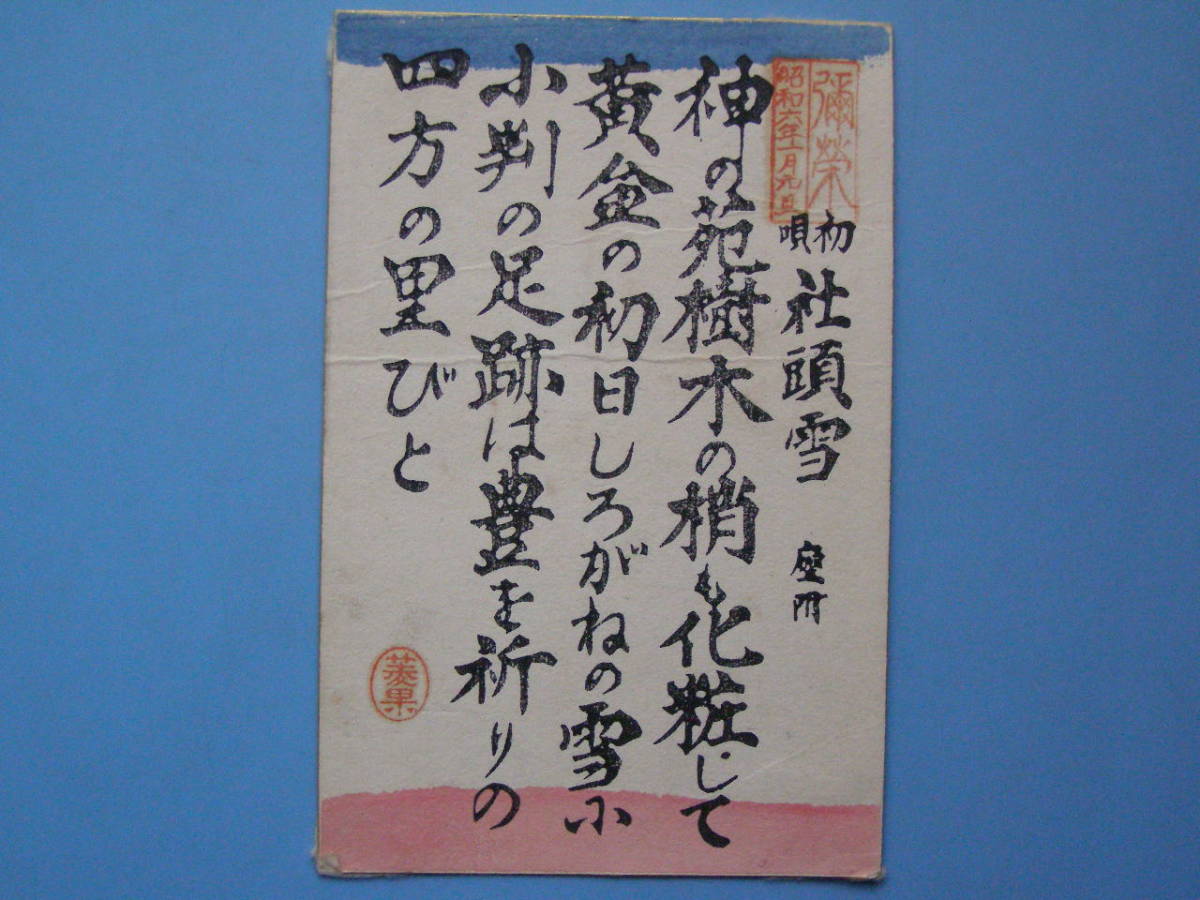 彌榮
昭和六年一月元旦
初唄 社頭雪 座附
神の苑樹木の梢も化粧して
黄金の初日しろがねの雪に
小判の足跡は豊を祈りの
四方の里びと
菱果